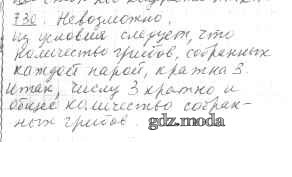 730. Невозможно.
Из условия следует, что
количество грибов, собранных
каждой парой, кратна 3.
Итак, числу 3 кратно и
общее количество собран-
ных грибов.
gdz.moda